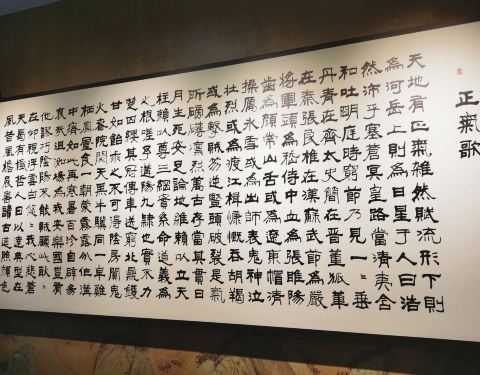 正氣歌
天地有正氣雜然賦流形下則
為河岳上則為日星于人曰浩
然沛乎塞蒼冥皇路當清夷含
和吐明庭時窮節乃見一一垂
丹青在齊太史簡在晋董狐筆
在秦張良椎在漢蘇武節為嚴
將軍頭為嵇侍中血為張睢陽
齒為顏常山舌或為遼東帽清
操厲冰雪或為出師表鬼神泣
壮烈或為渡江楫慷慨吞胡羯
或為擊賊笏逆豎頭破裂是氣
所磅礴凛烈萬古存當其貫日
月生死安足論地維賴以立天
柱賴以尊三綱實系命道義為
之根嗟予遘陽九隸也實不力
楚囚纓其冠傳車送窮北鼎鑊
甘如飴求之不可得陰房闐鬼
火春院閟天黑牛驥同一皂雞
栖鳳凰食一朝蒙霧露分作溝
中瘠如此再寒暑百沴自辟易
哀哉沮洳場為我安樂國豈有
他謬巧陰陽不能賊顧此耿耿
在仰視浮雲白悠悠我心悲蒼
天曷有極哲人日以遠典型在
夙昔風檐展書讀古道照顏色